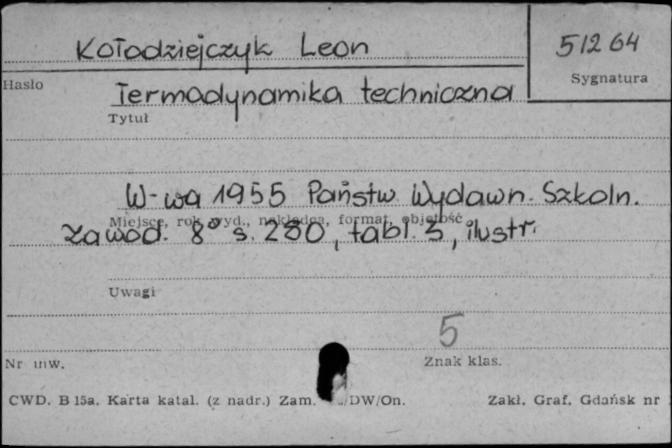 Kołodziejczyk Leon
51264
Hasło
Sygnatura
Termodynamika techniczna
Tytuł
W-wa 1955 Państw. Wydawn. Szkoln.
Miejsce, rok wyd., nakładca, format, objętość
Zawod. 8° s. 280, tabl. 5, ilustr.
Uwagi
5
Nr inw.
Znak klas.
CWD. B 15a. Karta katal. (z nadr.) Zam. DW/On.
Zakł. Graf. Gdańsk nr